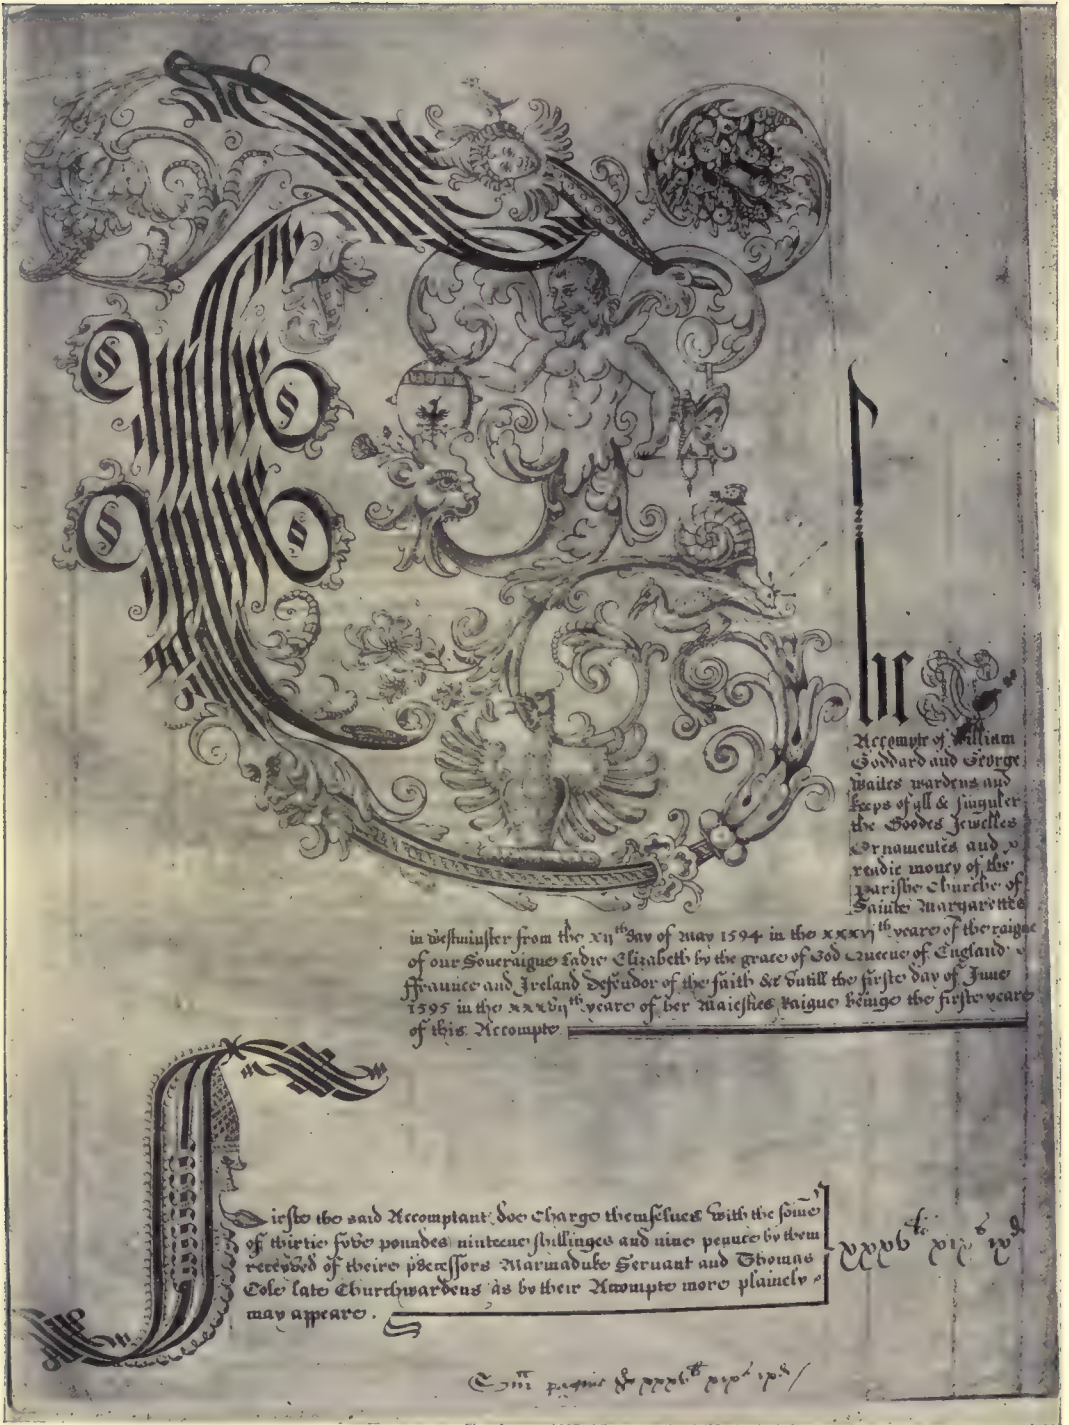 The
Accompte of William
Goddard and George
Waites wardens and
keeps of all & singuler
the Goodes Jewelles
Ornamentes and
readie money of the
parishe Churche of
Sainte Margarettes
in Westminster from the xijth day of May 1594 in the xxxvjth yeare of the raigne
of our Soueraigne Ladie Elizabeth by the grace of God Queene of England
ffraunce and Ireland defendor of the faith &c Vntill the firste day of June
1595 in the xxxvijth yeare of her Maiesties Raigne beinge the firste yeare
of this Accompte
Firste the said Accomptant doe Charge themselues with the som̄e
of thirtie fyve poundes ninteene shillinges and nine pennce by them
receyved of theire pdecessors Marmaduke Servant and Thomas
Cole late Churchwardens as by their Accompte more plainely
may appeare.
xxxvli xixs ixd
Sm̄ pagine xxxvli xixs ixd